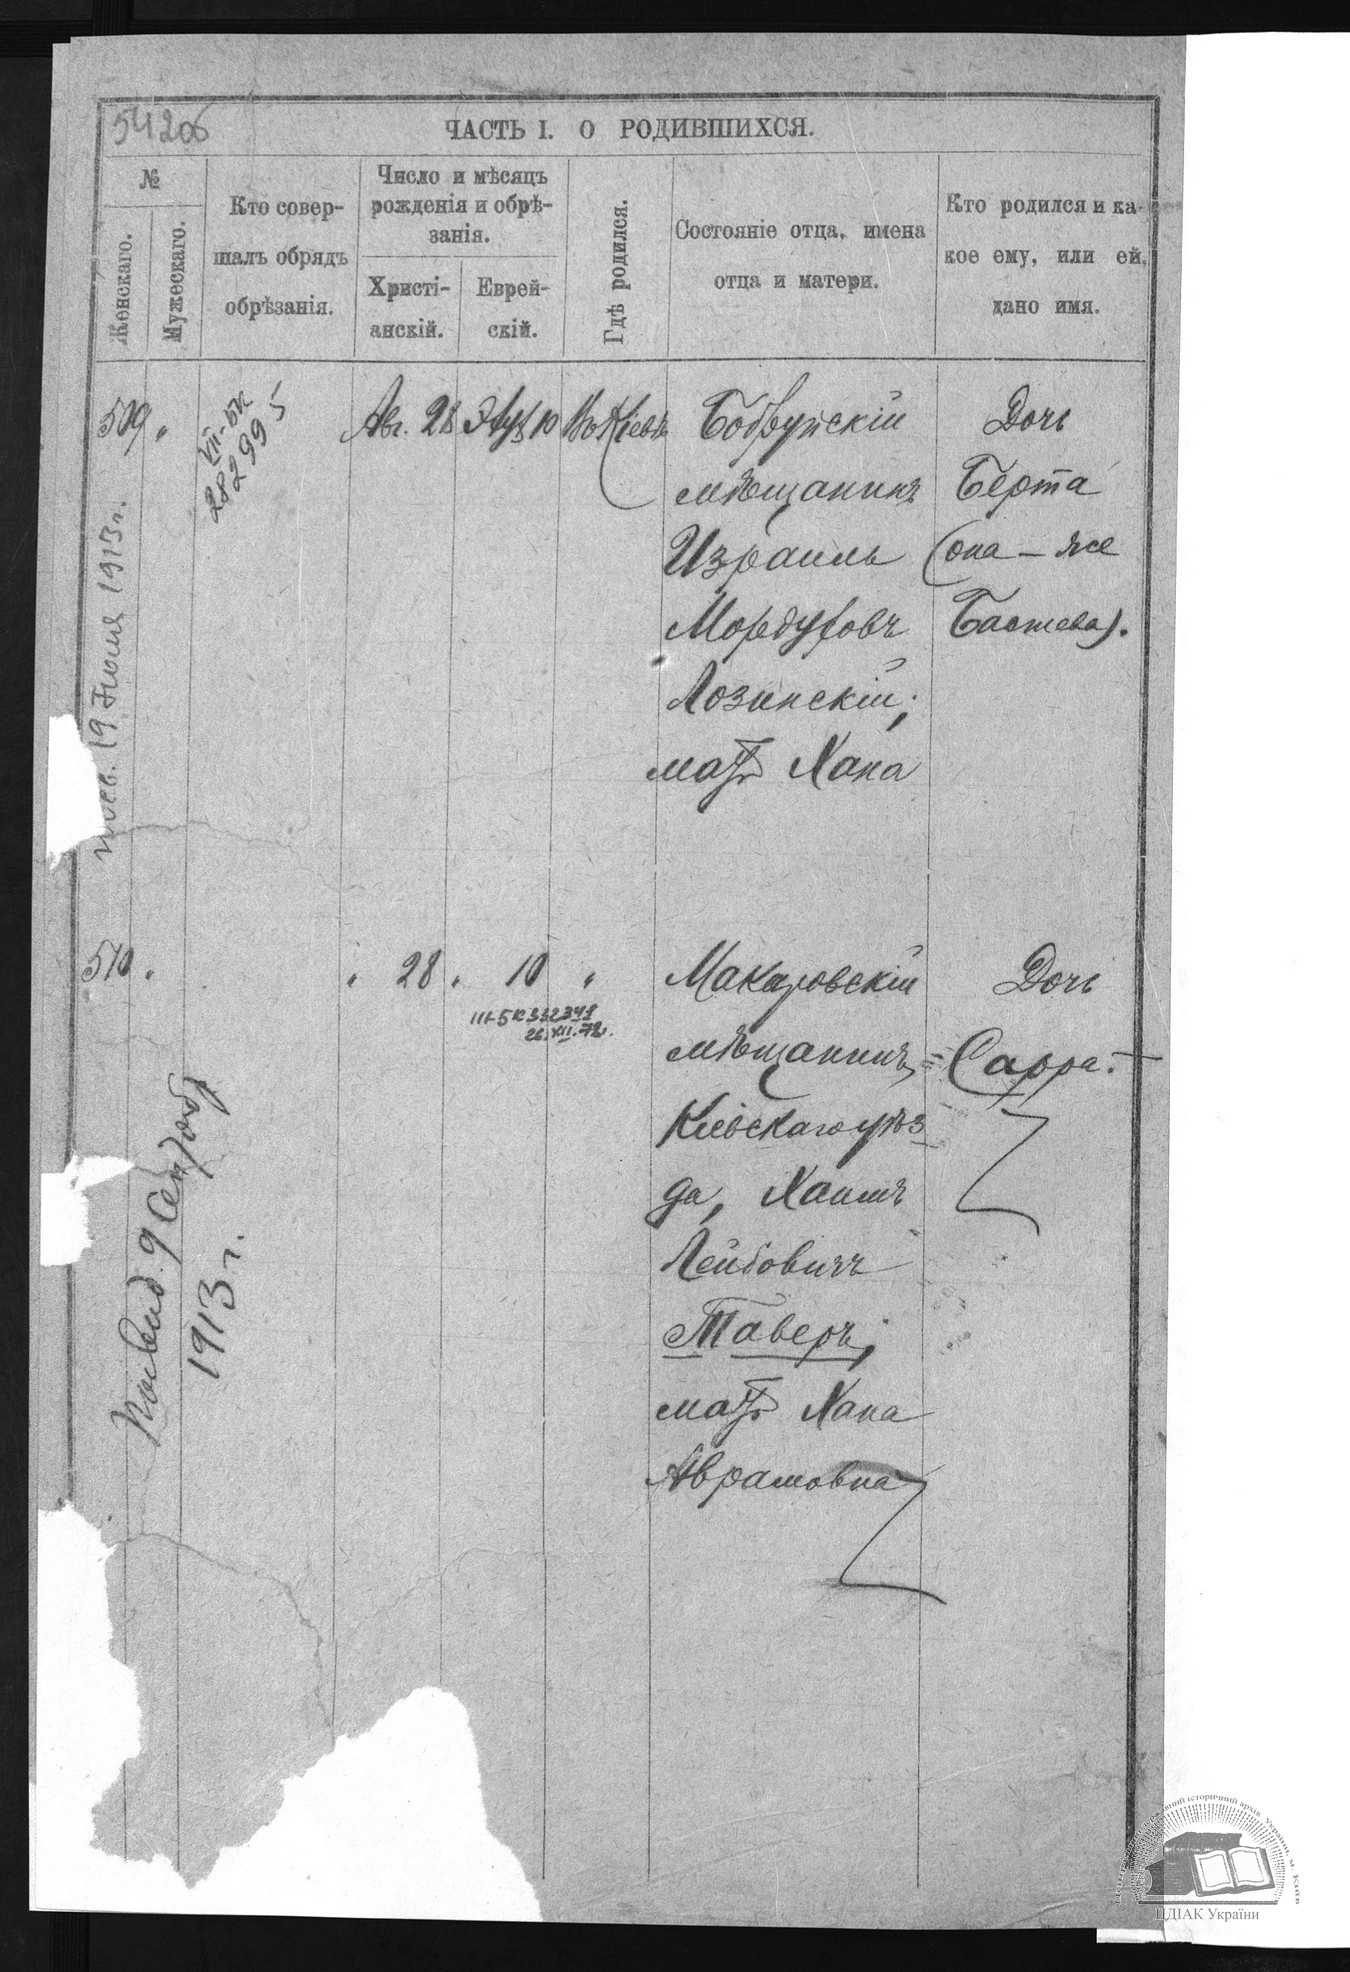 542об
ЧАСТЬ I. О РОДИВШИХСЯ.
№
Женскаго.
Мужескаго.
Кто совер-
шалъ обрядъ
обрѣзанія.
Число и мѣсяцъ
рожденія и обрѣ-
занія.
Христі-
анскій.
Еврей-
скій.
Гдѣ родился.
Состояніе отца, имена
отца и матери.
Кто родился и ка-
кое ему, или ей,
дано имя.
509 "
VII-БК
282995
Авг. 28
Элул 10
Въ Кіевѣ
Бобруйскій
мѣщанинъ
Израиль
Мордуховъ
Лозинскій;
мать Хана
Дочь
Берта
(она-же
Башева).
19 Іюня 1913 г.
510 "
" 28
" 10
"
III-БК 332341
26.XII.72.
Макаровскій
мѣщанинъ,
Кіевскаго уѣз-
да, Хаимъ
Лейбовичъ
Таверъ;
мать Хана
Аврамовна
Дочь
=Сарра.-
9 Сентября
1913 г.
ЦДІАК України